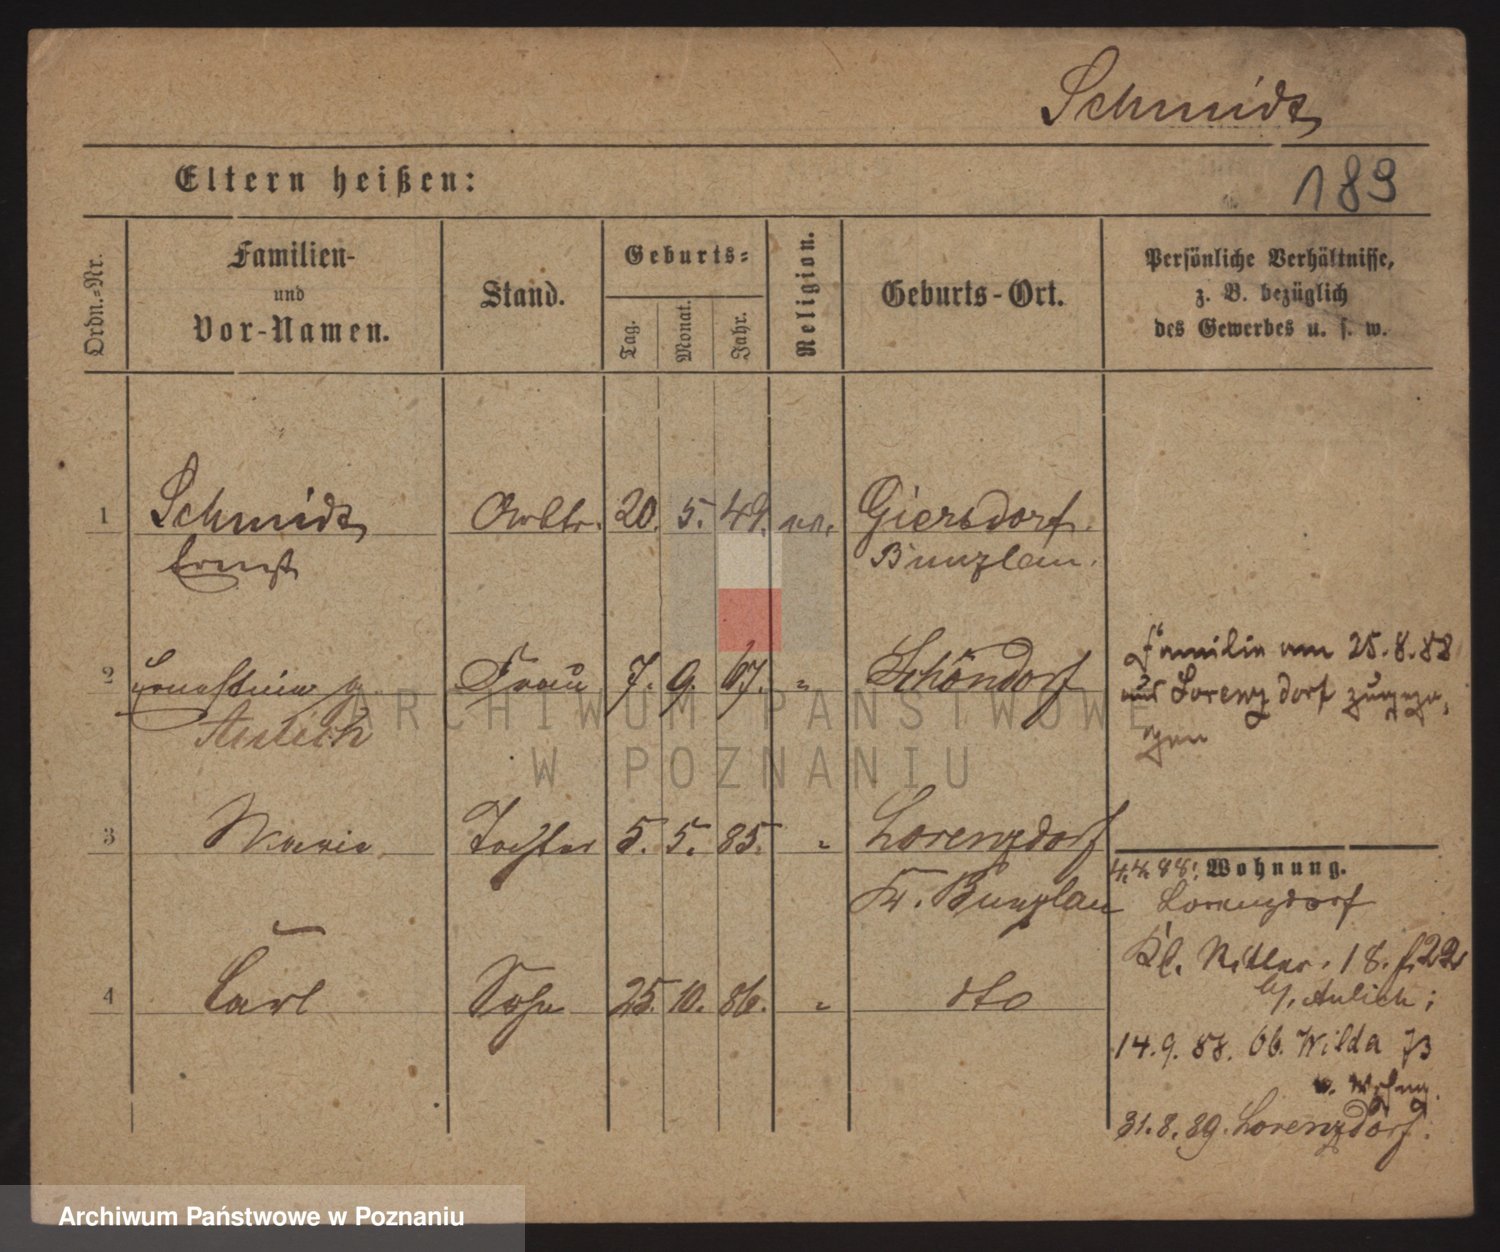 Schmidt
189
Eltern heißen:
Ordn.-Nr.
Familien-
und
Vor-Namen.
Stand.
Geburts-
Tag.
Monat.
Jahr.
Religion.
Geburts-Ort.
Persönliche Verhältnisse,
z. B. bezüglich
des Gewerbes u. s. w.
1 Schmidt Arbtr. 20. 5. 49. Giersdorf
Ernst Bunzlau.
2 Ernestine g. Frau 7. 9. 67. " Schöndorf
Aulich
Familie am 25.8.88
aus Lorenzdorf zugezo-
gen
3 Marie Tochter 5. 5. 85. " Lorenzdorf
Kr. Bunzlau
4 Carl Sohn 25. 10. 86. " dto
4.4.88: Wohnung.
Lorenzdorf
Kl. Ritter. 18.
b/. Aulich;
14.9.88. Ob. Wilda 73
v. Wohng.
31.8.89. Lorenzdorf.
ARCHIWUM PAŃSTWOWE
W POZNANIU
Archiwum Państwowe w Poznaniu